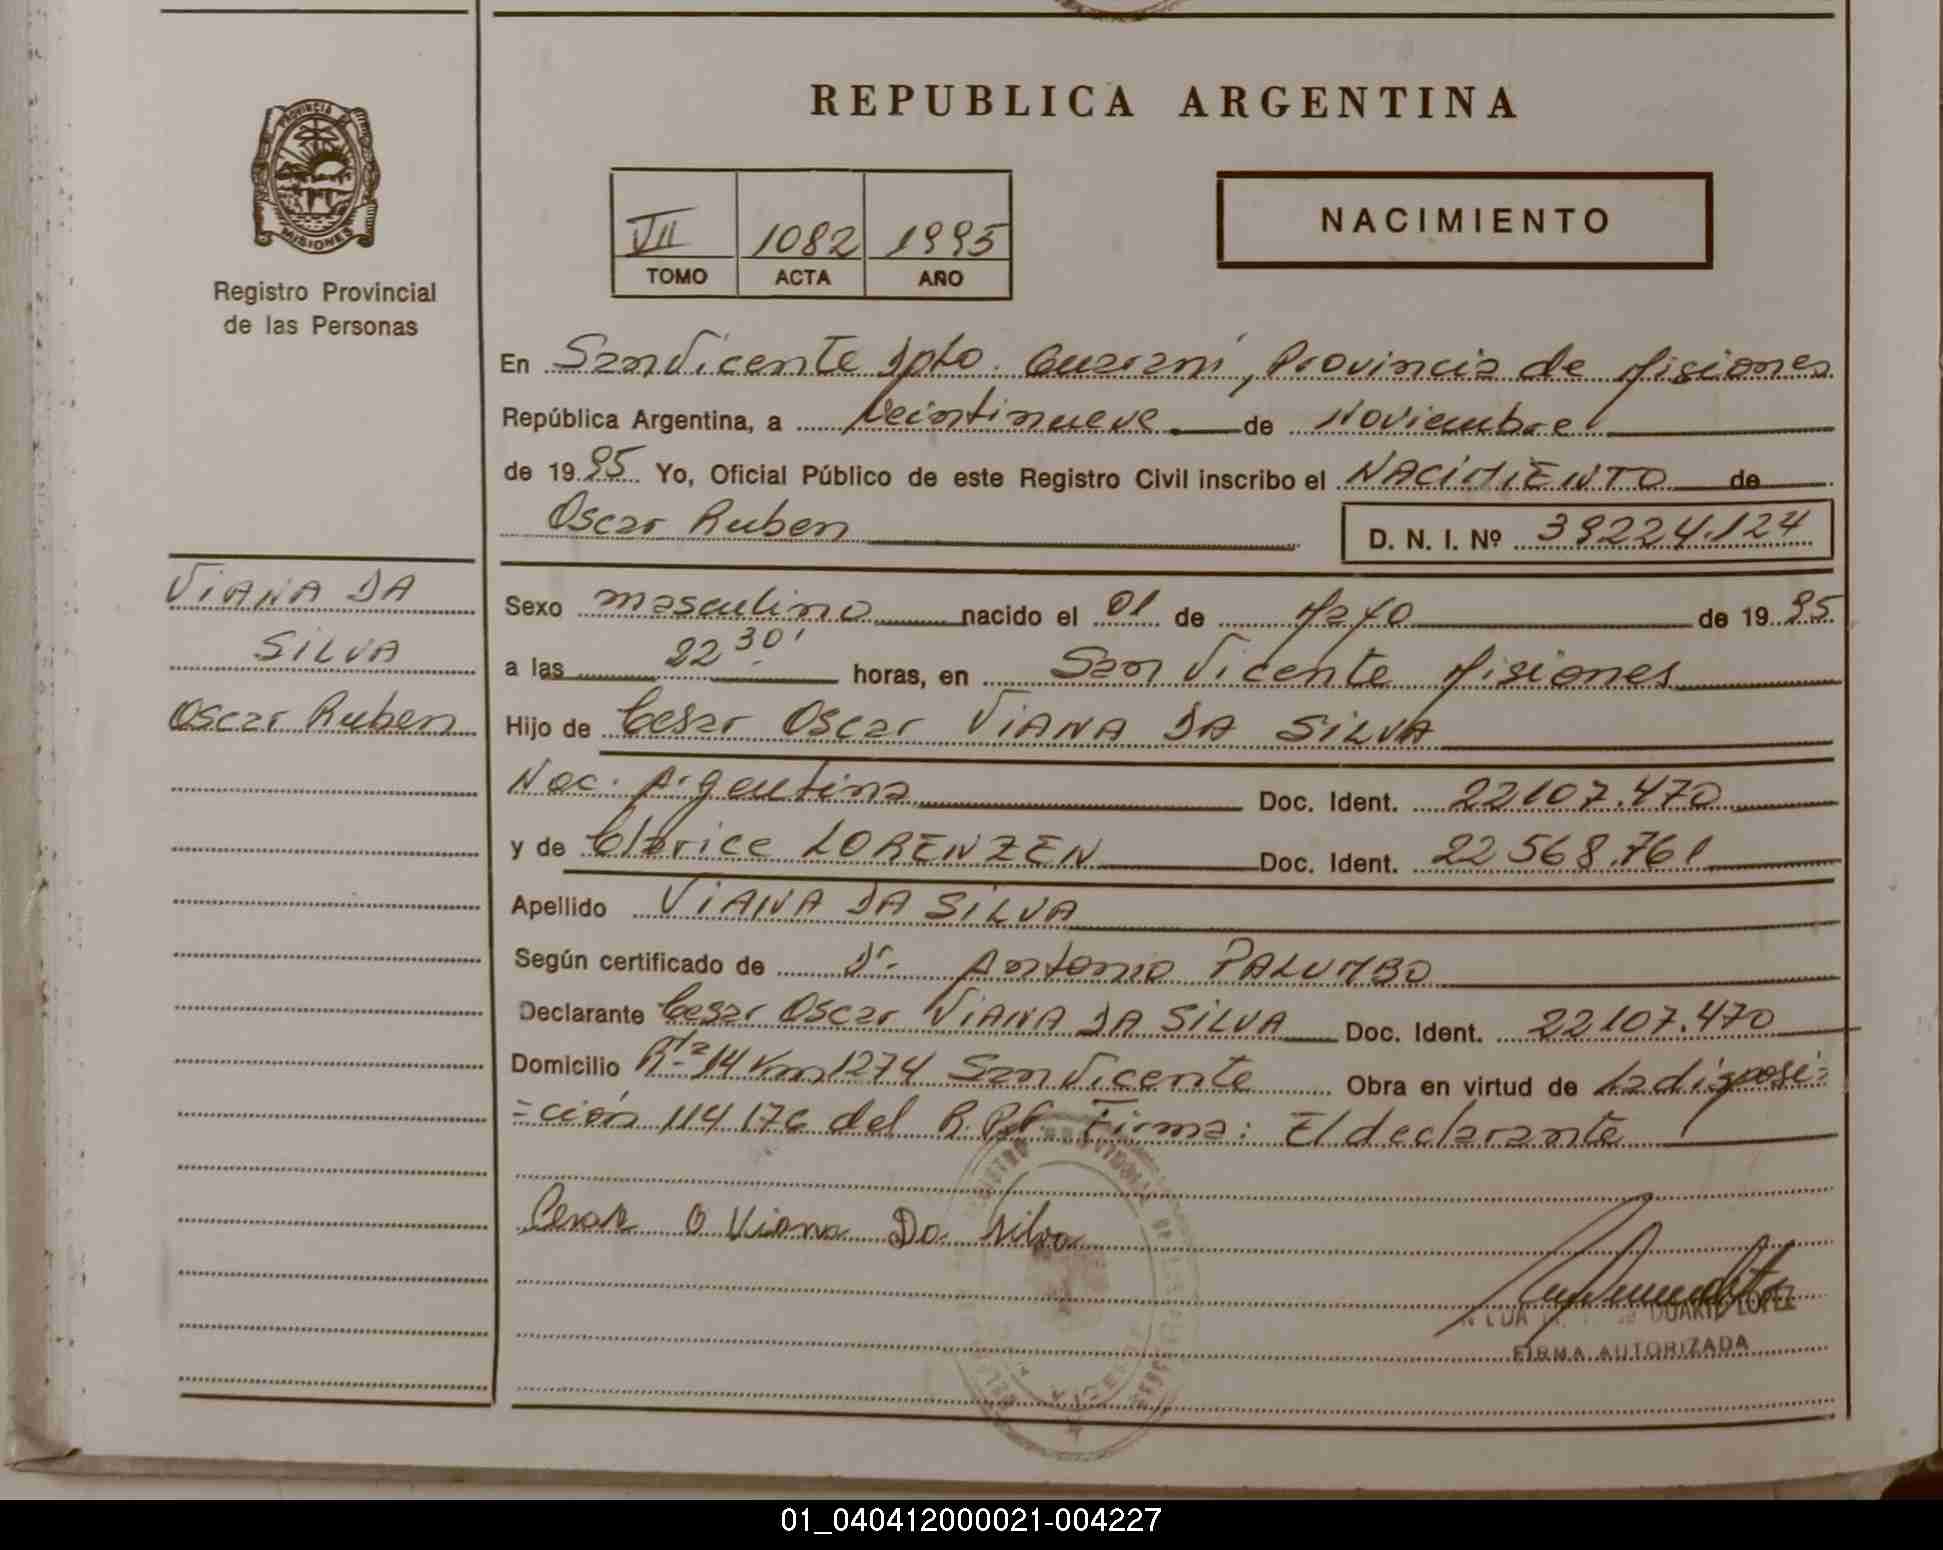 REPUBLICA ARGENTINA
PROVINCIA DE
MISIONES
Registro Provincial
de las Personas
VII 1082 1995
TOMO ACTA AÑO
NACIMIENTO
En San Vicente Dpto. Guaraní, Provincia de Misiones
República Argentina, a Veintinueve de Noviembre
de 1995 Yo, Oficial Público de este Registro Civil inscribo el NACIMIENTO de
Oscar Ruben D. N. I. Nº 39224.124
VIANA DA
SILVA
Oscar Ruben
Sexo masculino nacido el 01 de Mayo de 1995
a las 22 30' horas, en San Vicente Misiones
Hijo de Cesar Oscar VIANA DA SILVA
Nac. Argentina Doc. Ident. 22107.470
y de Clarice LORENZEN Doc. Ident. 22568.761
Apellido VIANA DA SILVA
Según certificado de Dr. Antonio PALUMBO
Declarante Cesar Oscar VIANA DA SILVA Doc. Ident. 22107.470
Domicilio Rta 14 Km 1274 San Vicente Obra en virtud de la disposi=
=ción 114/76 del R.P.P. Firma: El declarante
Cesar O Viana Da Silva
DUARTE LOPEZ
FIRMA AUTORIZADA
01_040412000021-004227